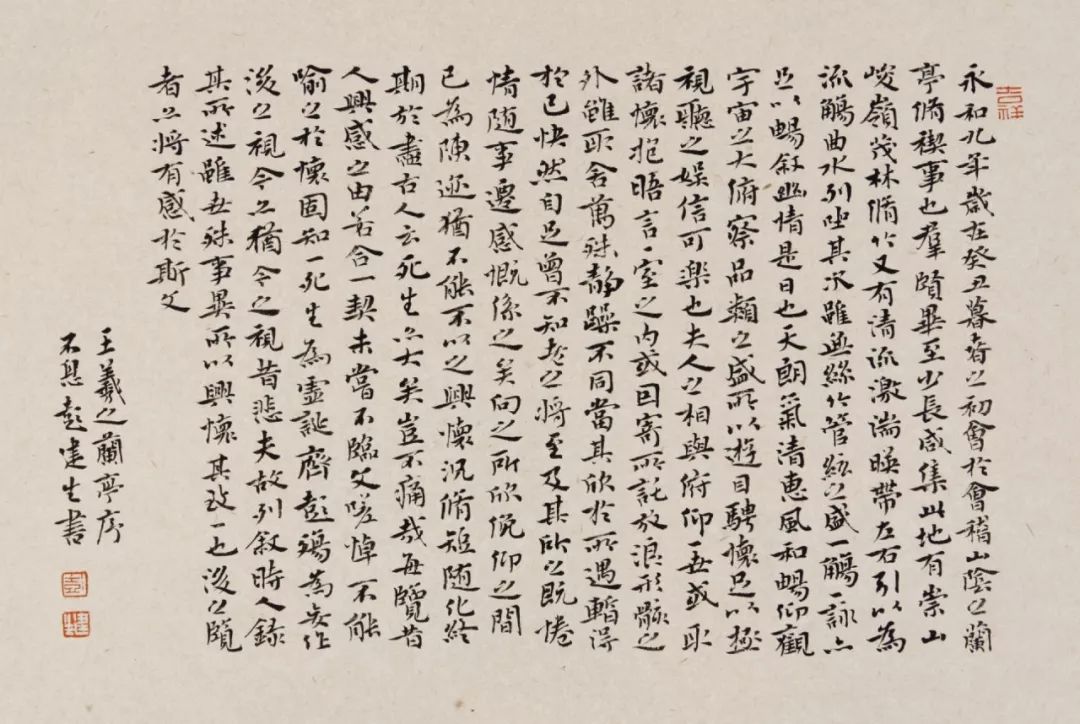 吉祥
永和九年歲在癸丑暮春之初會於會稽山陰之蘭
亭脩禊事也羣賢畢至少長咸集此地有崇山
峻嶺茂林脩竹又有清流激湍暎帶左右引以為
流觴曲水列坐其次雖無絲竹管絃之盛一觴一詠亦
足以暢敘幽情是日也天朗氣清惠風和暢仰觀
宇宙之大俯察品類之盛所以遊目騁懷足以極
視聽之娛信可樂也夫人之相與俯仰一世或取
諸懷抱晤言一室之內或因寄所託放浪形骸之
外雖取舍萬殊靜躁不同當其欣於所遇暫得
於己快然自足曾不知老之將至及其所之既惓
情隨事遷感慨係之矣向之所欣俛仰之間
已為陳迹猶不能不以之興懷況脩短隨化終
期於盡古人云死生亦大矣豈不痛哉每覽昔
人興感之由若合一契未嘗不臨文嗟悼不能
喻之於懷固知一死生為虛誕齊彭殤為妄作
後之視今亦猶今之視昔悲夫故列敘時人錄
其所述雖世殊事異所以興懷其致一也後之覽
者亦將有感於斯文
王羲之蘭亭序
不息彭建生書